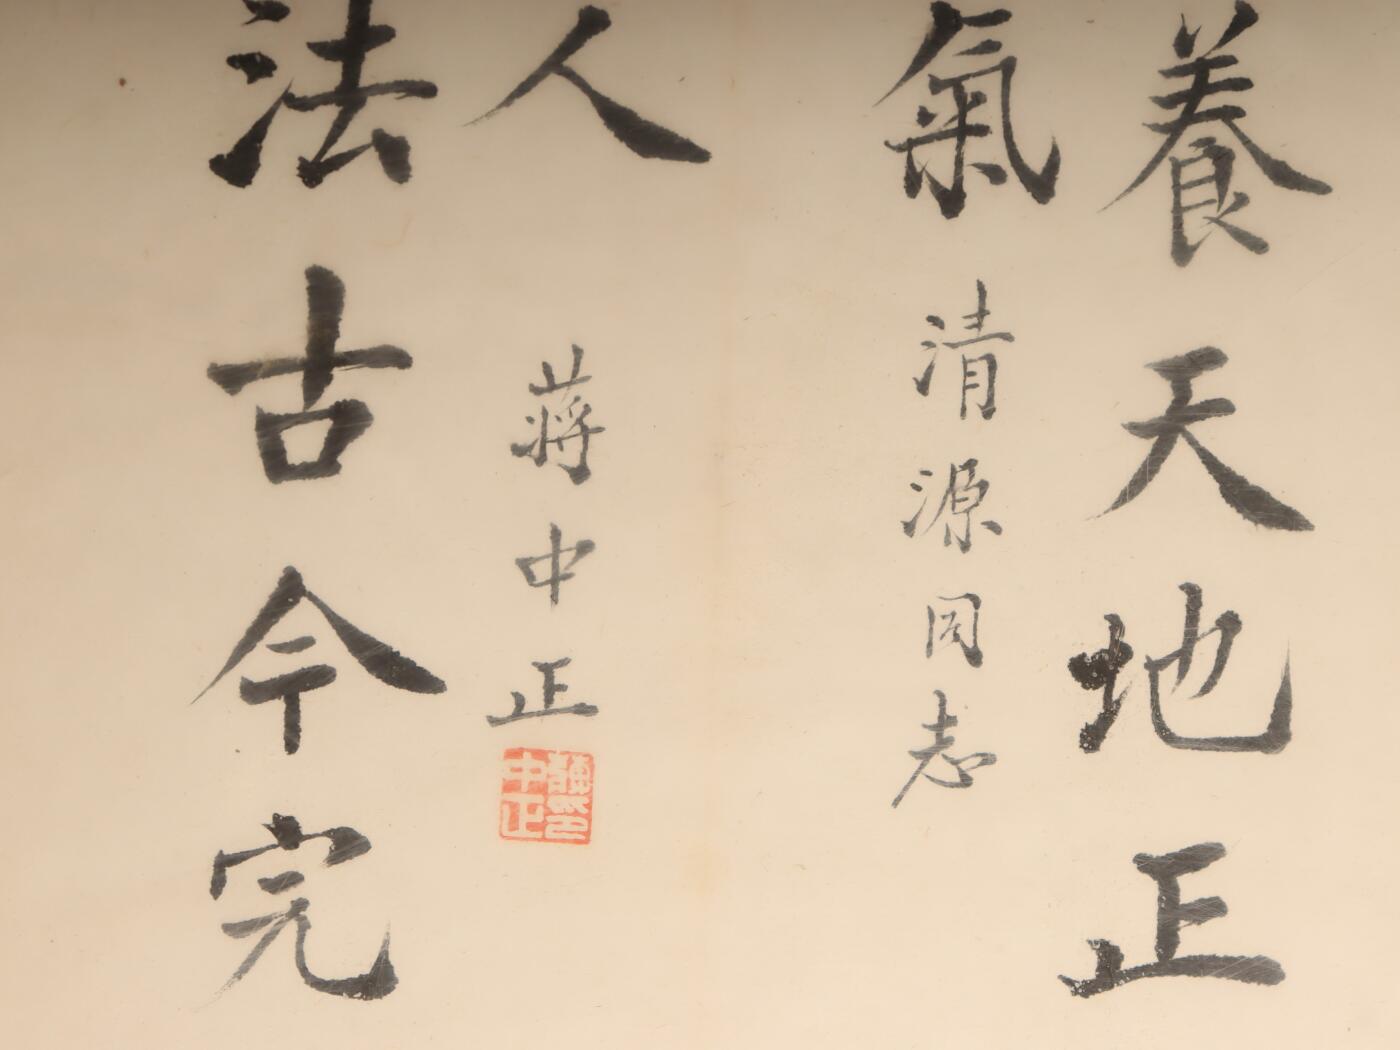 養天地正
氣
清源同志
人
蔣中正
蔣中正印
法古今完